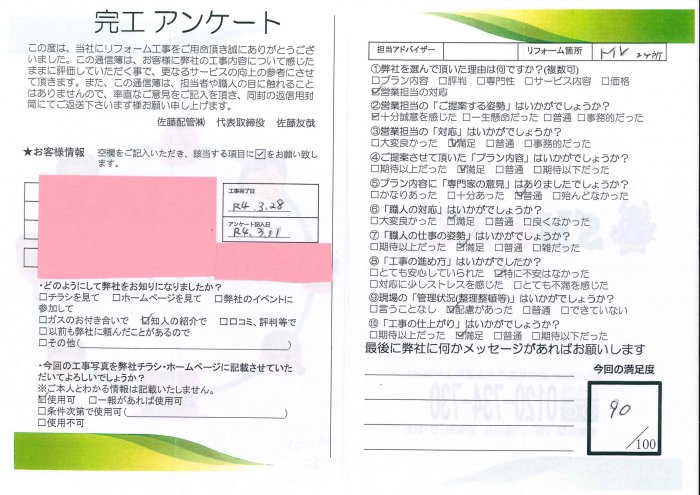 完工 アンケート
この度は、当社にリフォーム工事をご用命頂き誠にありがとうござ
いました。この通信簿は、お客様に弊社の工事内容について感じた
ままに評価していただく事で、更なるサービスの向上の参考にさせ
て頂きます。また、この通信簿は、担当者や職人の目に触れること
はありませんので、率直なご意見をご記入を頂き、同封の返信用封
筒にてご返送下さいます様お願い申し上げます。
佐藤配管㈱ 代表取締役 佐藤友哉
★お客様情報 空欄をご記入いただき、該当する項目に☑をお願い致し
ます。
工事完了日
R4.3.28
アンケート記入日
R4.3.31
・どのようにして弊社をお知りになりましたか？
□チラシを見て □ホームページを見て □弊社のイベントに
参加して
□ガスのお付き合いで ☑知人の紹介で □口コミ、評判等で
□以前も弊社に頼んだことがあるので
□その他( )
・今回の工事写真を弊社チラシ・ホームページに記載させていた
だいてよろしいでしょうか？
※ご本人とわかる情報は記載いたしません。
☑使用可 □一報があれば使用可
□条件次第で使用可( )
□使用不可
担当アドバイザー
リフォーム箇所
①弊社を選んで頂いた理由は何ですか？(複数可)
□プラン内容 □評判 □専門性 □サービス内容 □価格
☑営業担当の対応
②営業担当の「ご提案する姿勢」はいかがでしょうか？
☑十分誠意を感じた □一生懸命だった □普通 □事務的だった
③営業担当の「対応」はいかがでしょうか？
□大変良かった ☑満足 □普通 □事務的だった
④ご提案させて頂いた「プラン内容」はいかがでしょうか？
□期待以上だった ☑満足 □普通 □期待以下だった
⑤プラン内容に「専門家の意見」はありましたでしょうか？
□かなりあった □十分あった ☑普通 □殆んどなかった
⑥「職人の対応」はいかがでしょうか？
□大変良かった ☑満足 □普通 □良くなかった
⑦「職人の仕事の姿勢」はいかがでしょうか？
□期待以上だった ☑満足 □普通 □雑だった
⑧「工事の進め方」はいかがでしょうか？
□とても安心していられた ☑特に不安はなかった
□対応に少しストレスを感じた □とても不満を感じた
⑨現場の「管理状況(整理整頓等)」はいかがでしょうか？
□言うことなし ☑配慮があった □普通 □できていない
⑩「工事の仕上がり」はいかがでしょうか？
□期待以上だった ☑満足 □普通 □期待以下だった
最後に弊社に何かメッセージがあればお願いします
今回の満足度
90
/100